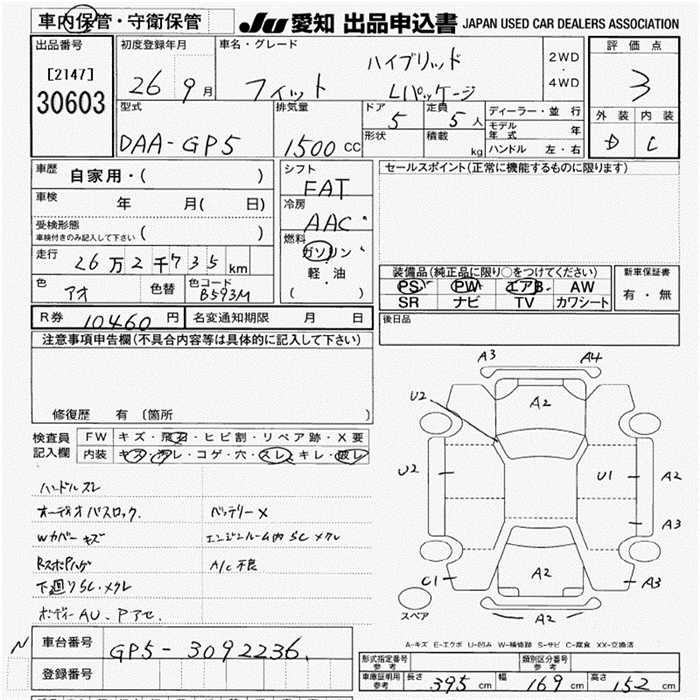 車内保管・守衛保管
JU 愛知 出品申込書 JAPAN USED CAR DEALERS ASSOCIATION
出品番号
[2147]
30603
初度登録年月
26 9月
車名・グレード
フィット ハイブリッド Lパッケージ
2WD・4WD
評価点
3
外装 内装
D C
型式
DAA-GP5
排気量
1500 CC
ドア
5
定員
5人
形状
積載
kg
ディーラー・並行
モデル年式 年
ハンドル 左・右
車歴
自家用・( )
車検
年 月( 日)
受検形態
車検付きのみ記入して下さい ( )
走行
26万2千735km
色
アオ
色替
色コード
B593M
シフト
FAT
冷房
AAC
燃料
ガソリン
軽・油
( )
セールスポイント(正常に機能するものに限ります)
装備品(純正品に限り○をつけてください)
PS PW エアB AW
SR ナビ TV カワシート
新車保証書
有・無
R券 10460円
名変通知期限 月 日
後日品
注意事項申告欄(不具合内容等は具体的に記入して下さい)
修復歴 有 〔箇所 〕
検査員記入欄
FW キズ・飛石・ヒビ割・リペア跡・X要
内装 キズ・汚レ・コゲ・穴・スレ・キレ・破レ
ハンドルスレ
オーディオパスロック.
バッテリーX
Wカバーキズ
エンジンルーム内SCメクレ
A/C不良
下廻りSC.メクレ
ボディーAU.Pアセ
A3 A4
A2
U2
U2
U1 A2
A3
C1
A2
A3
A2
スペア
A-キズ E-エクボ U-凹み W-補修跡 S-サビ C-腐食 XX-交換済
N
車台番号
GP5-3092236
登録番号
形式指定番号 参考
類別区分番号 参考
車庫証明用 参考
長さ 395cm
幅 169cm
高さ 152cm